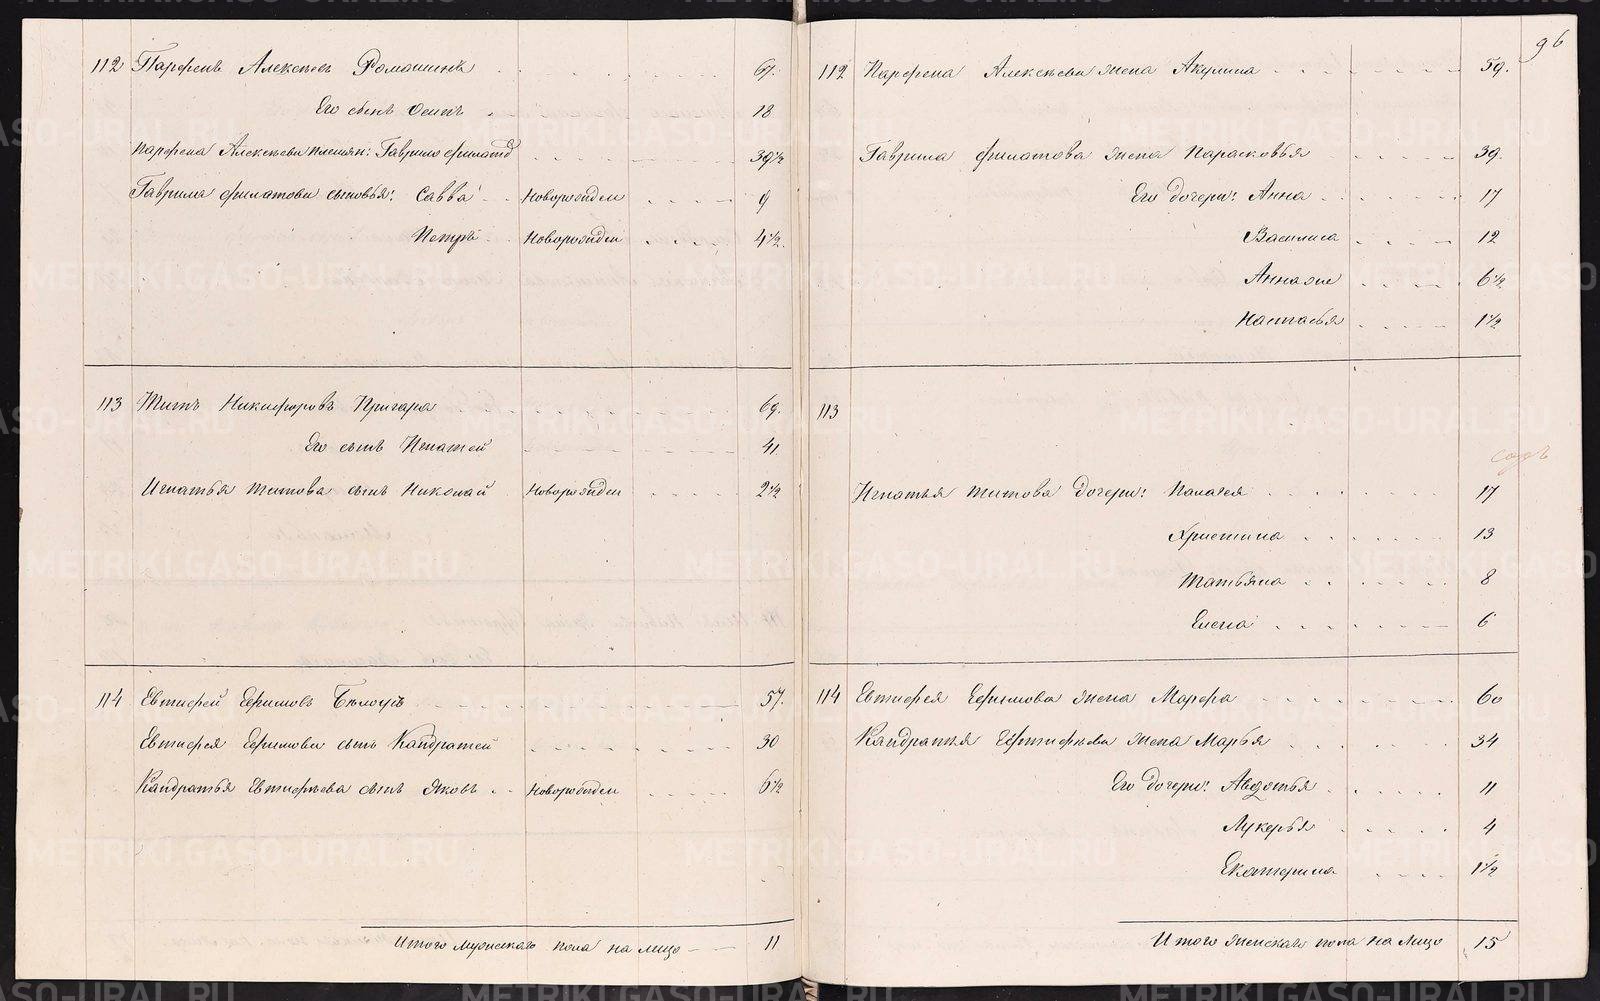 96
112 Парфенъ Алексѣевъ Ромашинъ 61.
Его сынъ Осипъ 18
Парфена Алексѣева племян: Гаврило Филатов 39½
Гаврила Филатова сыновья: Савва Новорожден 9
Петръ Новорожден 4½.
113 Титъ Никифоровъ Пригара 69.
Его сынъ Игнатей 41
Игнатья Титова сынъ Николай Новорожден 2½
114 Евтифей Ефимовъ Бѣлоусъ 57.
Евтифея Ефимова сынъ Кандратей 30
Кандратья Евтифѣева сынъ Яковъ Новорожден 6½
Итого мужескаго пола на лицо 11
112 Парфена Алексѣева жена Акулина 59.
Гаврила Филатова жена Парасковья 39.
Его дочери: Анна 17
Василиса 12
Анна же 6½
Настасья 1½
113
Игнатья Титова дочери: Палагея 17
Христина 13
Татьяна 8
Елена 6
114 Евтифея Ефимова жена Марфа 60
Кандратья Ефтифѣева жена Марья 34
Его дочери: Авдотья 11
Лукерья 4
Екатерина 1½
Итого женскаго пола на лицо 15
METRIKI.GASO-URAL.RU